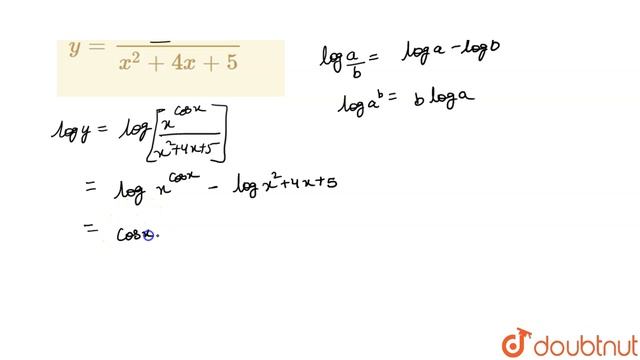 y = ─── / x² + 4x + 5
log a/b = log a − log b
log aᵇ = b log a
log y = log [x^cosx / x²+4x+5]
= log x^cosx − log x²+4x+5
= cosx
doubtnut